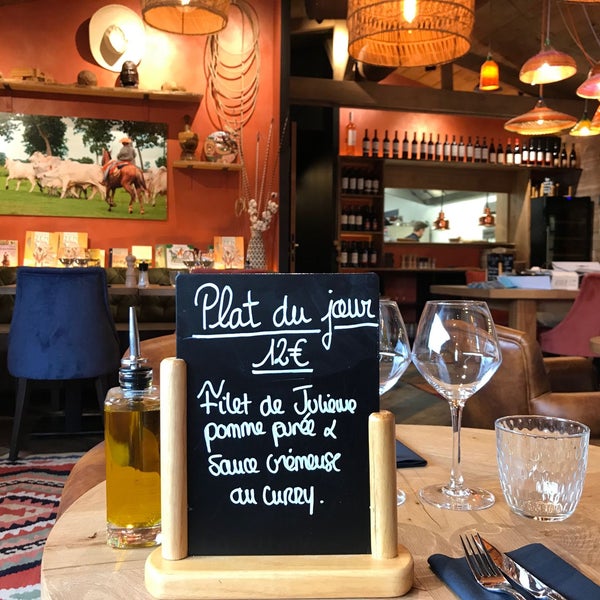 Plat du jour
12€
Filet de Julienne
pomme purée &
sauce crémeuse
au curry.